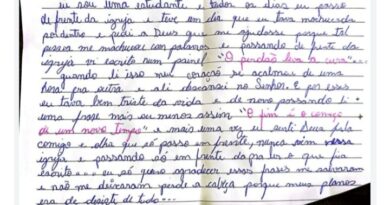 eu sou uma estudante e todos os dias eu passo
de frente da igreja e teve um dia que eu tava machucada
por dentro e pedi a Deus que me ajudasse porque tal
pessoa me machucou com palavras e passando de frente da
igreja vi escrito num painel "O perdão leva a cura"...
quando li isso meu coração se acalmou de uma
hora pra outra e ali descansei no Senhor. E por esses
eu tava bem triste da vida e de novo passando li
uma frase mais ou menos assim "O fim é o começo
de um novo tempo" e mais uma vez eu senti Deus falar
comigo e olha que só passo em frente, nunca vim nessa
igreja e passando só em frente da pra ler o que fica
escrito... eu só quero agradecer essas frases me salvaram
e não me deixaram perder a cabeça porque meus planos
era de desistir de tudo...